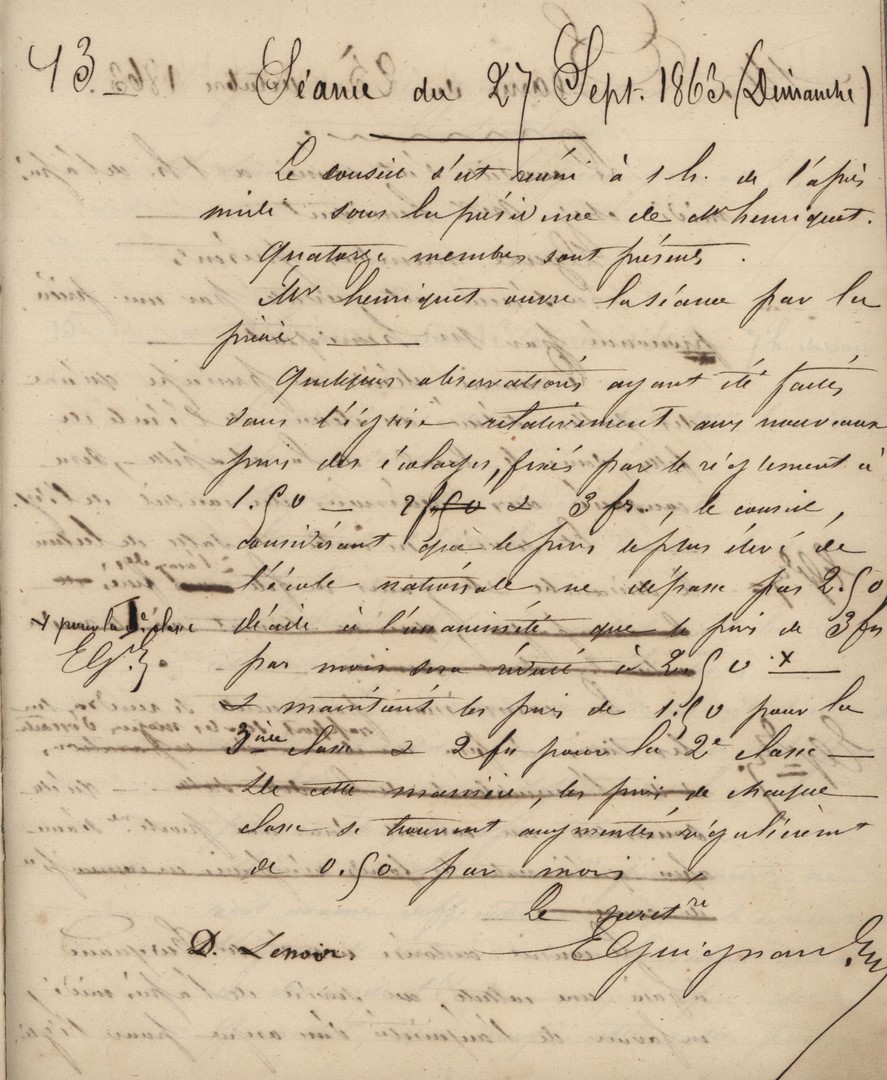 43 Séance du 27 Sept. 1863 (Dimanche)
Le conseil s'est réuni à 1 h. de l'après
midi sous la présidence de Mr henriquet.
Quatorze membres sont présents.
Mr henriquet ouvre la séance par la
prière
Quelques observations ayant été faites
dans l'église relativement aux nouveaux
prix des écolages, fixés par le règlement à
1.50 — 2f 50 & 3 fr., le conseil,
considérant que le prix le plus élevé de
l'école nationale ne dépasse pas 2.50
décide à l'unanimité que le prix de 3 frs
par mois sera réduit à 2.50 x
x pour la 1e classe
EG
& maintient les prix de 1.50 pour la
3ième classe & 2 frs pour la 2e classe —
De cette manière, les prix de chaque
classe se trouvent augmentés régulièrement
de 0.50 par mois
Le secretre
D. Lenoir EGuignard